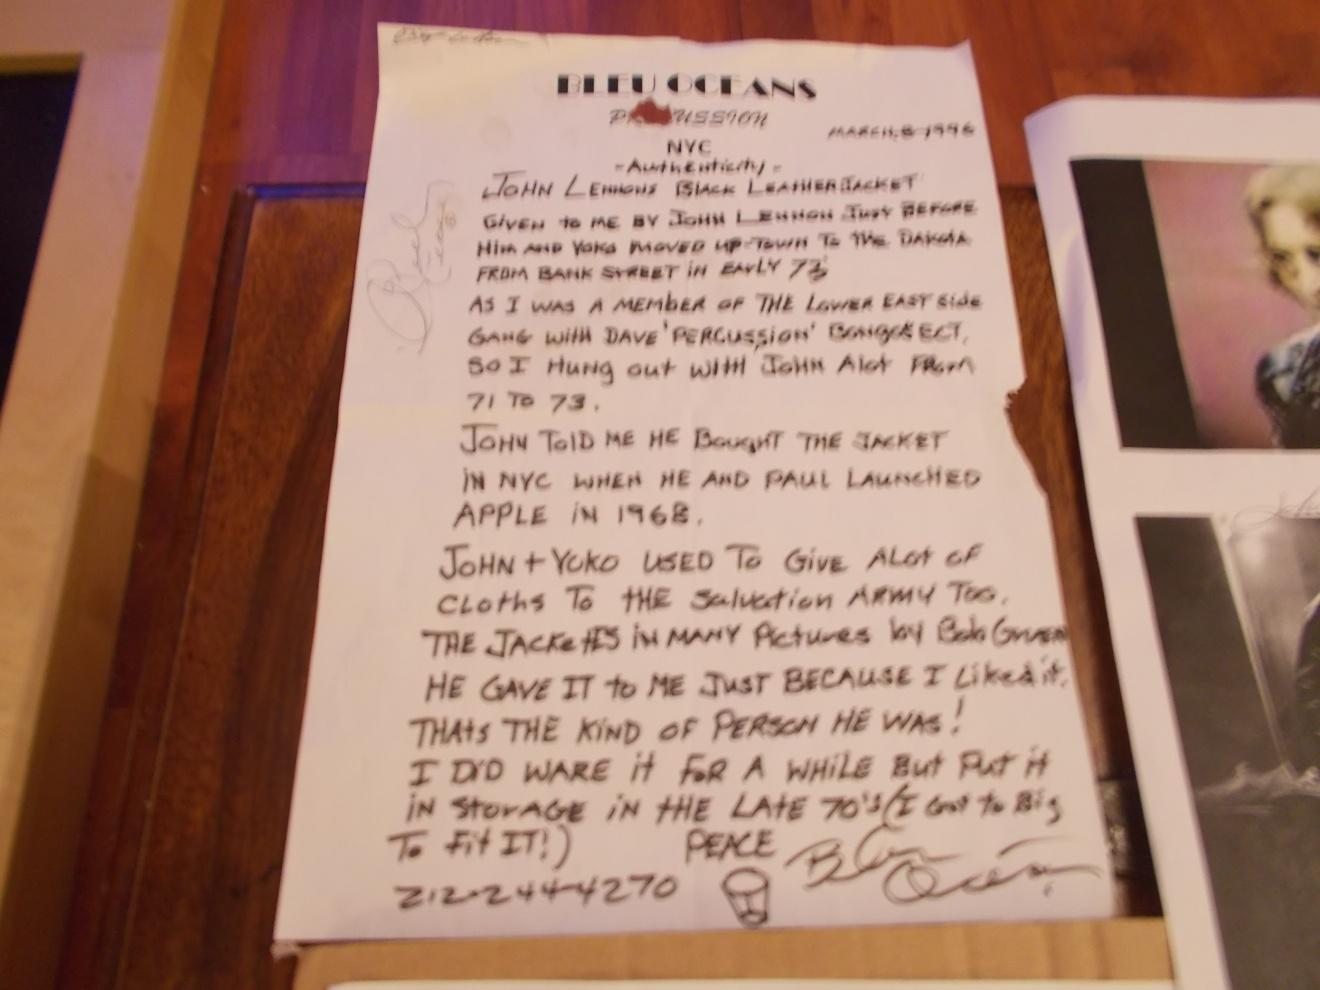 BLEU OCEANS
PERCUSSION
MARCH, 8-1996
NYC
-Authenticity-
JOHN LENNONS BLACK LEATHER JACKET
GIVEN to ME BY JOHN LENNON JUST BEFORE
HIM AND YOKO MOVED UP-TOWN TO THE DAKOTA
FROM BANK STREET IN EARLY 73'
AS I WAS A MEMBER OF THE LOWER EAST Side
GANG WITH DAVE 'PERCUSSION' BONGOS ECT,
SO I HUNG out WITH JOHN Alot FROM
71 TO 73.
JOHN TOLD ME HE BOUGHT THE JACKET
IN NYC WHEN HE AND PAUL LAUNCHED
APPLE IN 1968.
JOHN + YOKO USED TO GIVE ALOT OF
CLOTHS TO THE Salvation ARMY TOO.
THE JACKETS IN MANY Pictures by Bob Gruen
HE GAVE IT to ME JUST BECAUSE I Liked it.
THATS THE KIND OF PERSON HE WAS!
I DID WARE it FOR A WHILE BUT PUT it
IN STORAGE IN THE LATE 70'S (I Got to Big
To Fit IT!) PEACE Bleu Oceans
212-244-4270